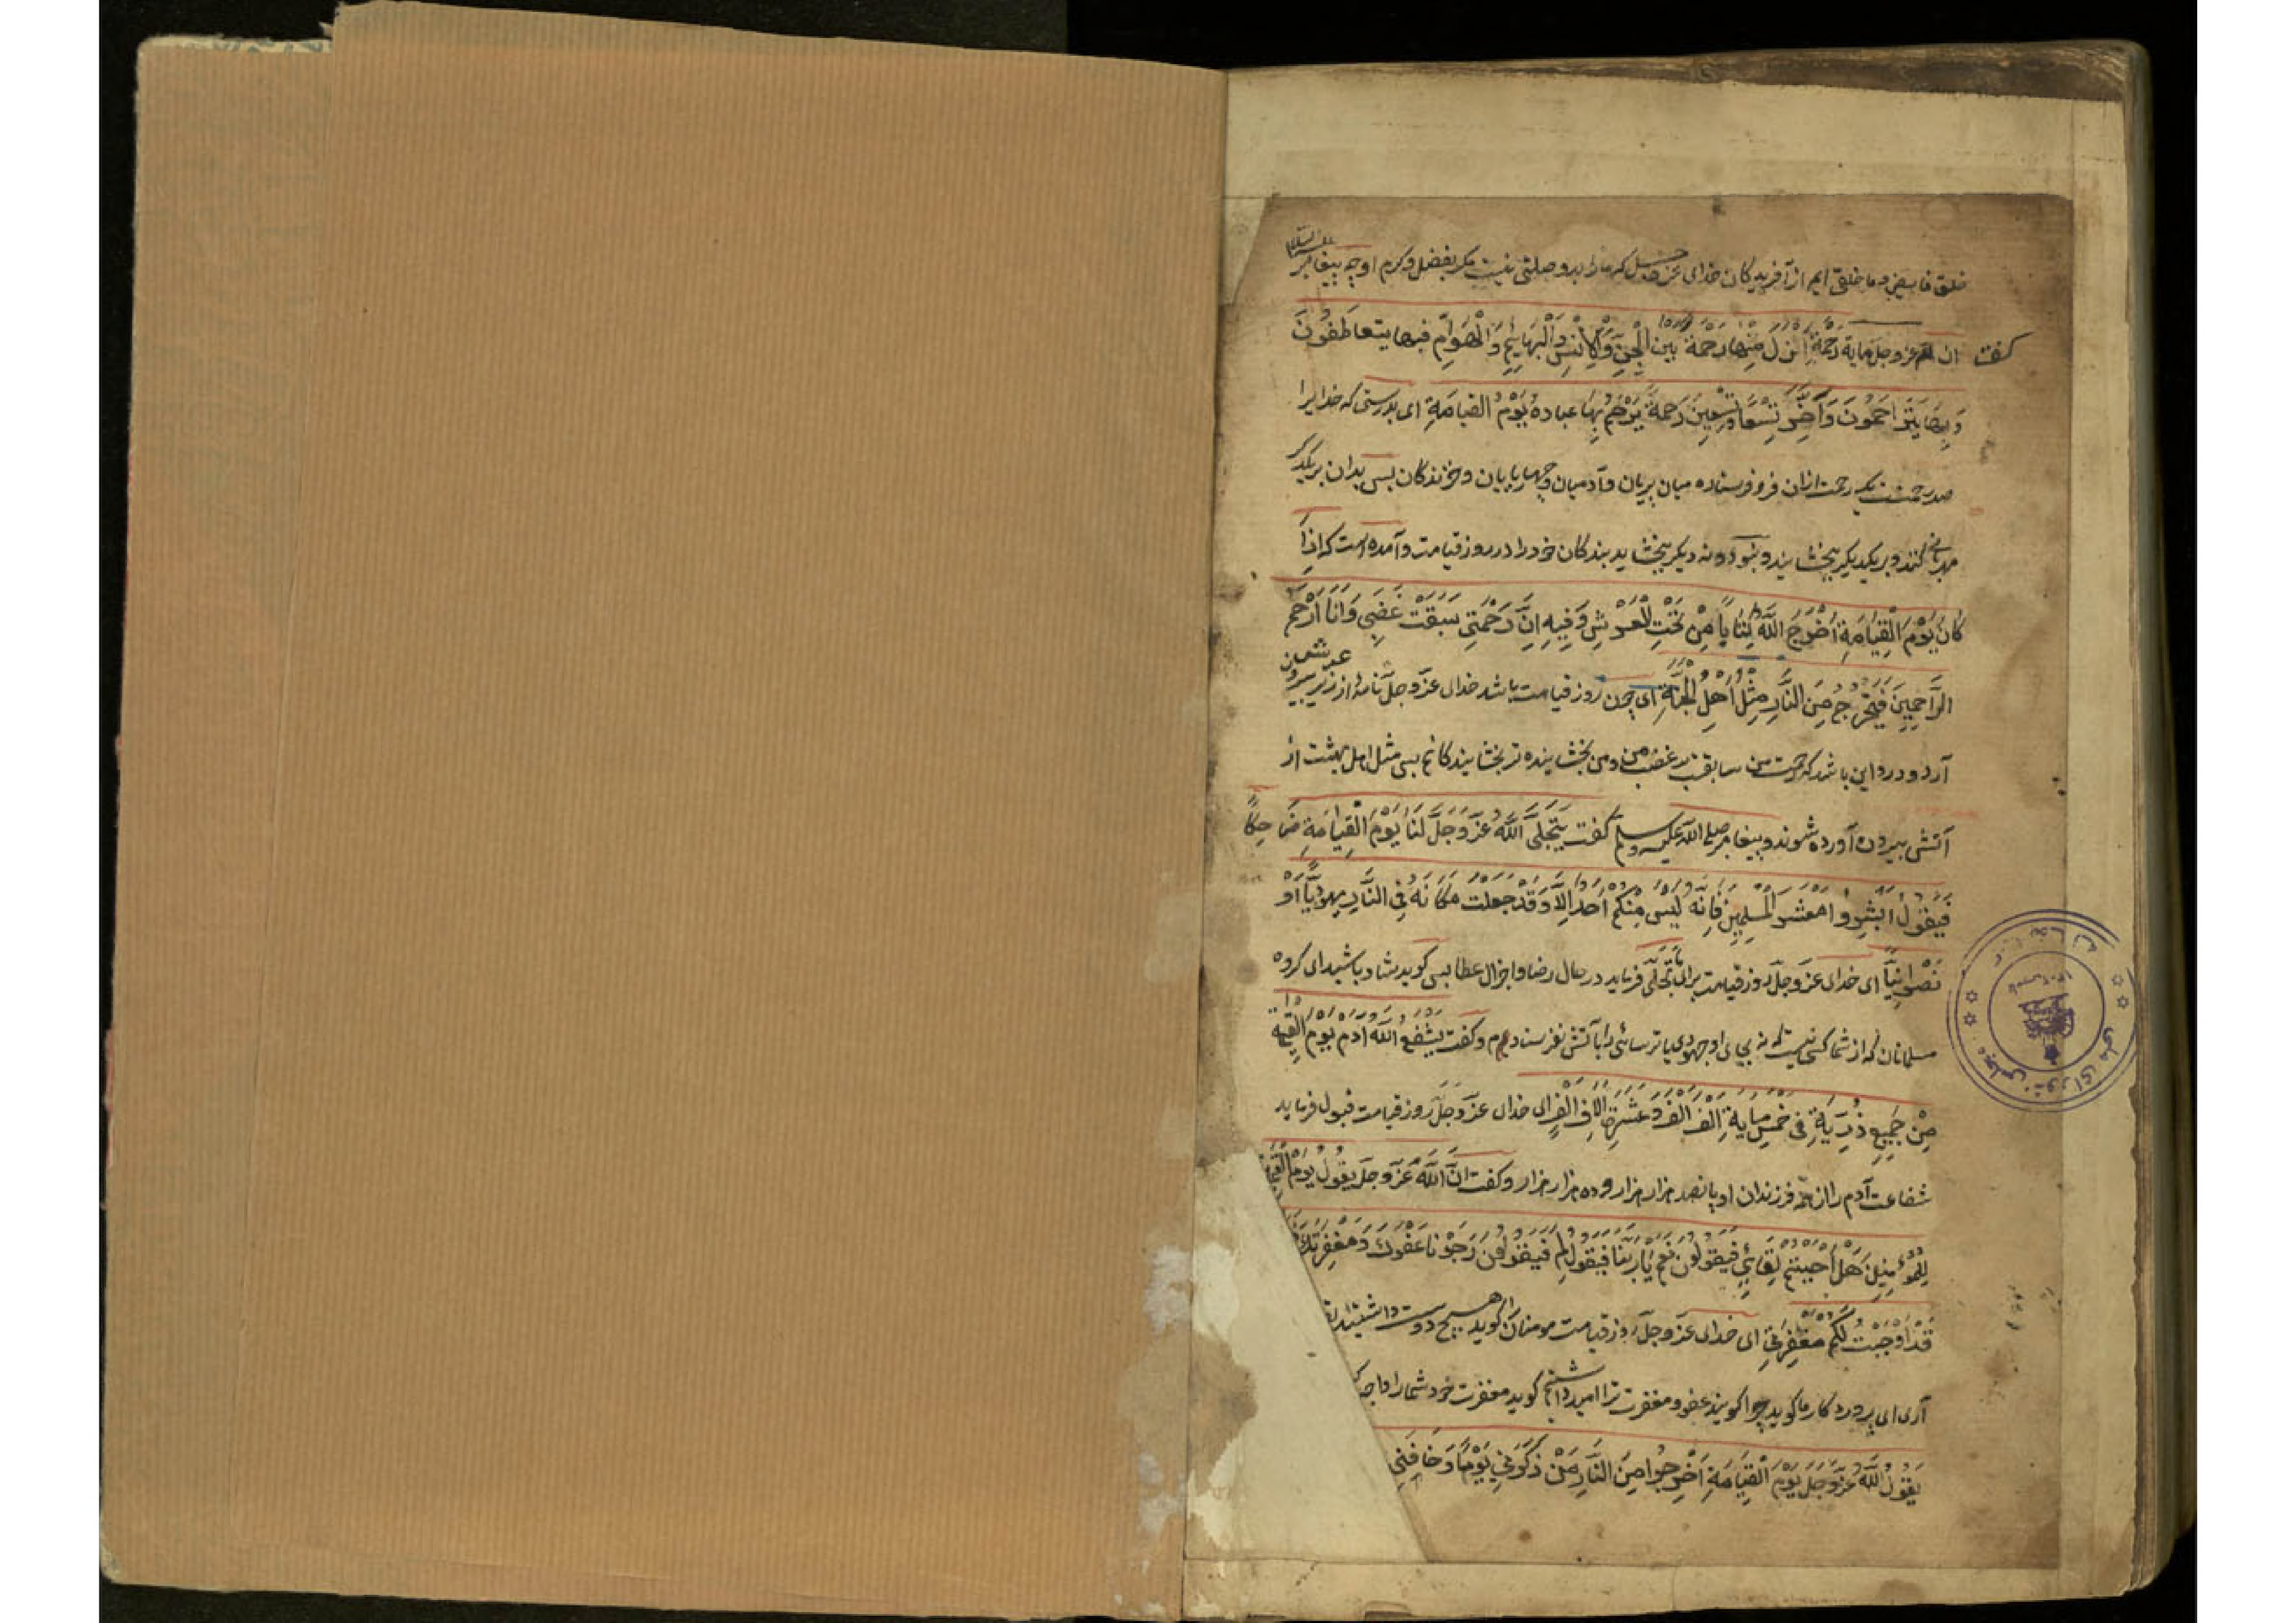 خلق فایض و ما خلقی ایم از آفریدکان خدای عز و جل که ما را بدو وصلتی نیست مکر بفضل و کرم او چه پیغامبر علیه السلام
کفت ان لله عز وجل مایة رَحْمَةٍ انزل مِنْها رَحْمَةً بین الْجِنِّ وَالْاِنْسِ وَالْبَهایِمِ وَالْهَوَامِّ فبها یتعاطَفُونَ
وَبِهَا یَتَرَاحَمُونَ وَاَخَّرَ تِسْعًا وَتِسْعِینَ رَحْمَةً یَرْحَمُ بِهَا عبادهُ یَوْمَ القیامَةِ ای بدرستی که خدایرا
صد رحمتست یک رحمت ازان فرو فرستاده میان پریان و آدمیان و چهارپایان و خزندکان بس بدان بر یکدیکر
مهربانی کنند و بر یکدیکر ببخشایند و نود و نه دیکر ببخشاید بندکان خود را در روز قیامت و آمده است که اِذَا
کَانَ یَوْمُ الْقِیَامَةِ اَخْرَجَ اللَّهُ کِتَابًا مِنْ تَحْتِ الْعَرْشِ وَفِیهِ اِنَّ رَحْمَتِی سَبَقَتْ غَضَبِی وَاَنَا اَرْحَمُ
الرَّاحِمِینَ فَیَخْرُجُ مِنَ النَّارِ مِثْلُ اَهْلِ الْجَنَّةِ ای چون روز قیامت باشد خدای عزّ وجلّ نامهٔ از زیر عرش بیرون
آرد و درو این باشد که رحمت من سابقست بر غضب من و من بخشاینده تر بخشایندکانم بس مثل اهل بهشت از
آتش بیرون آورده شوند و پیغامبر صلی الله علیه وسلم کفت یَتَجَلَّی اللَّهُ عَزَّ وَجَلَّ لَنَا یَوْمَ الْقِیَامَةِ ضَاحِکًا
فَیَقُولُ اَبْشِرُوا مَعْشَرَ الْمُسْلِمِینَ فَاِنَّهُ لَیْسَ مِنْکُمْ اَحَدٌ اِلَّا وَقَدْ جَعَلْتُ مَکَانَهُ فِی النَّارِ یَهُودِیًّا اَوْ
نَصْرَانِیًّا ای خدای عز وجل روز قیامت برای ما تجلّی فرماید در حال رضا و اجزال عطا بس کوید شاد باشید ای کروه
مسلمانان که از شما کسی نیست که نه بجای او جهودی یا ترسائی را بآتش نفرستادم و کفت یُشَفِّعُ اللَّهُ آدَمَ یَوْمَ القیمة
مِنْ جَمِیعِ ذُرِّیَّتِهِ فی خَمْسِ مِایَةِ اَلْفِ اَلْفٍ وَعَشَرَةِ آلَافِ اَلْفٍ ای خدای عز وجل روز قیامت قبول فرماید
شفاعت آدم را از همه فرزندان او پانصد هزار هزار و ده هزار هزار و کفت انَّ اللَّهَ عَزَّ وجلّ یَقُولُ یَوْمَ الْقیمة
لِلْمُؤْمِنِینَ هَلْ اَحْبَبْتُمْ لِقَائِی فَیَقُولُونَ نَعَمْ یَا رَبَّنَا فَیَقُولُ لِمَ فَیَقُولُونَ رَجَوْنَا عَفْوَكَ وَمَغْفِرَتَكَ
قَدْ اَوْجَبْتُ لَکُمْ مَغْفِرَتِی ای خدای عز وجل روز قیامت مومنان را کوید هیچ دوست داشتید
آری ای پروردکار ما کوید چرا کویند عفو و مغفرت ترا امید داشتیم کوید مغفرت خود شما را
یَقُولُ اللَّهُ عَزَّ وَجَلَّ یَوْمَ الْقِیَامَةِ اَخْرِجُوا مِنَ النَّارِ مَنْ ذَکَرَنِی یَوْمًا وَخَافَنِی